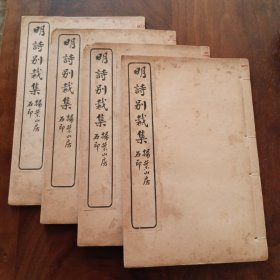 明詩別裁集
掃葉山房
石印
明詩別裁集
掃葉山房
石印
明詩別裁集
掃葉山房
石印
明詩別裁集
掃葉山房
石印